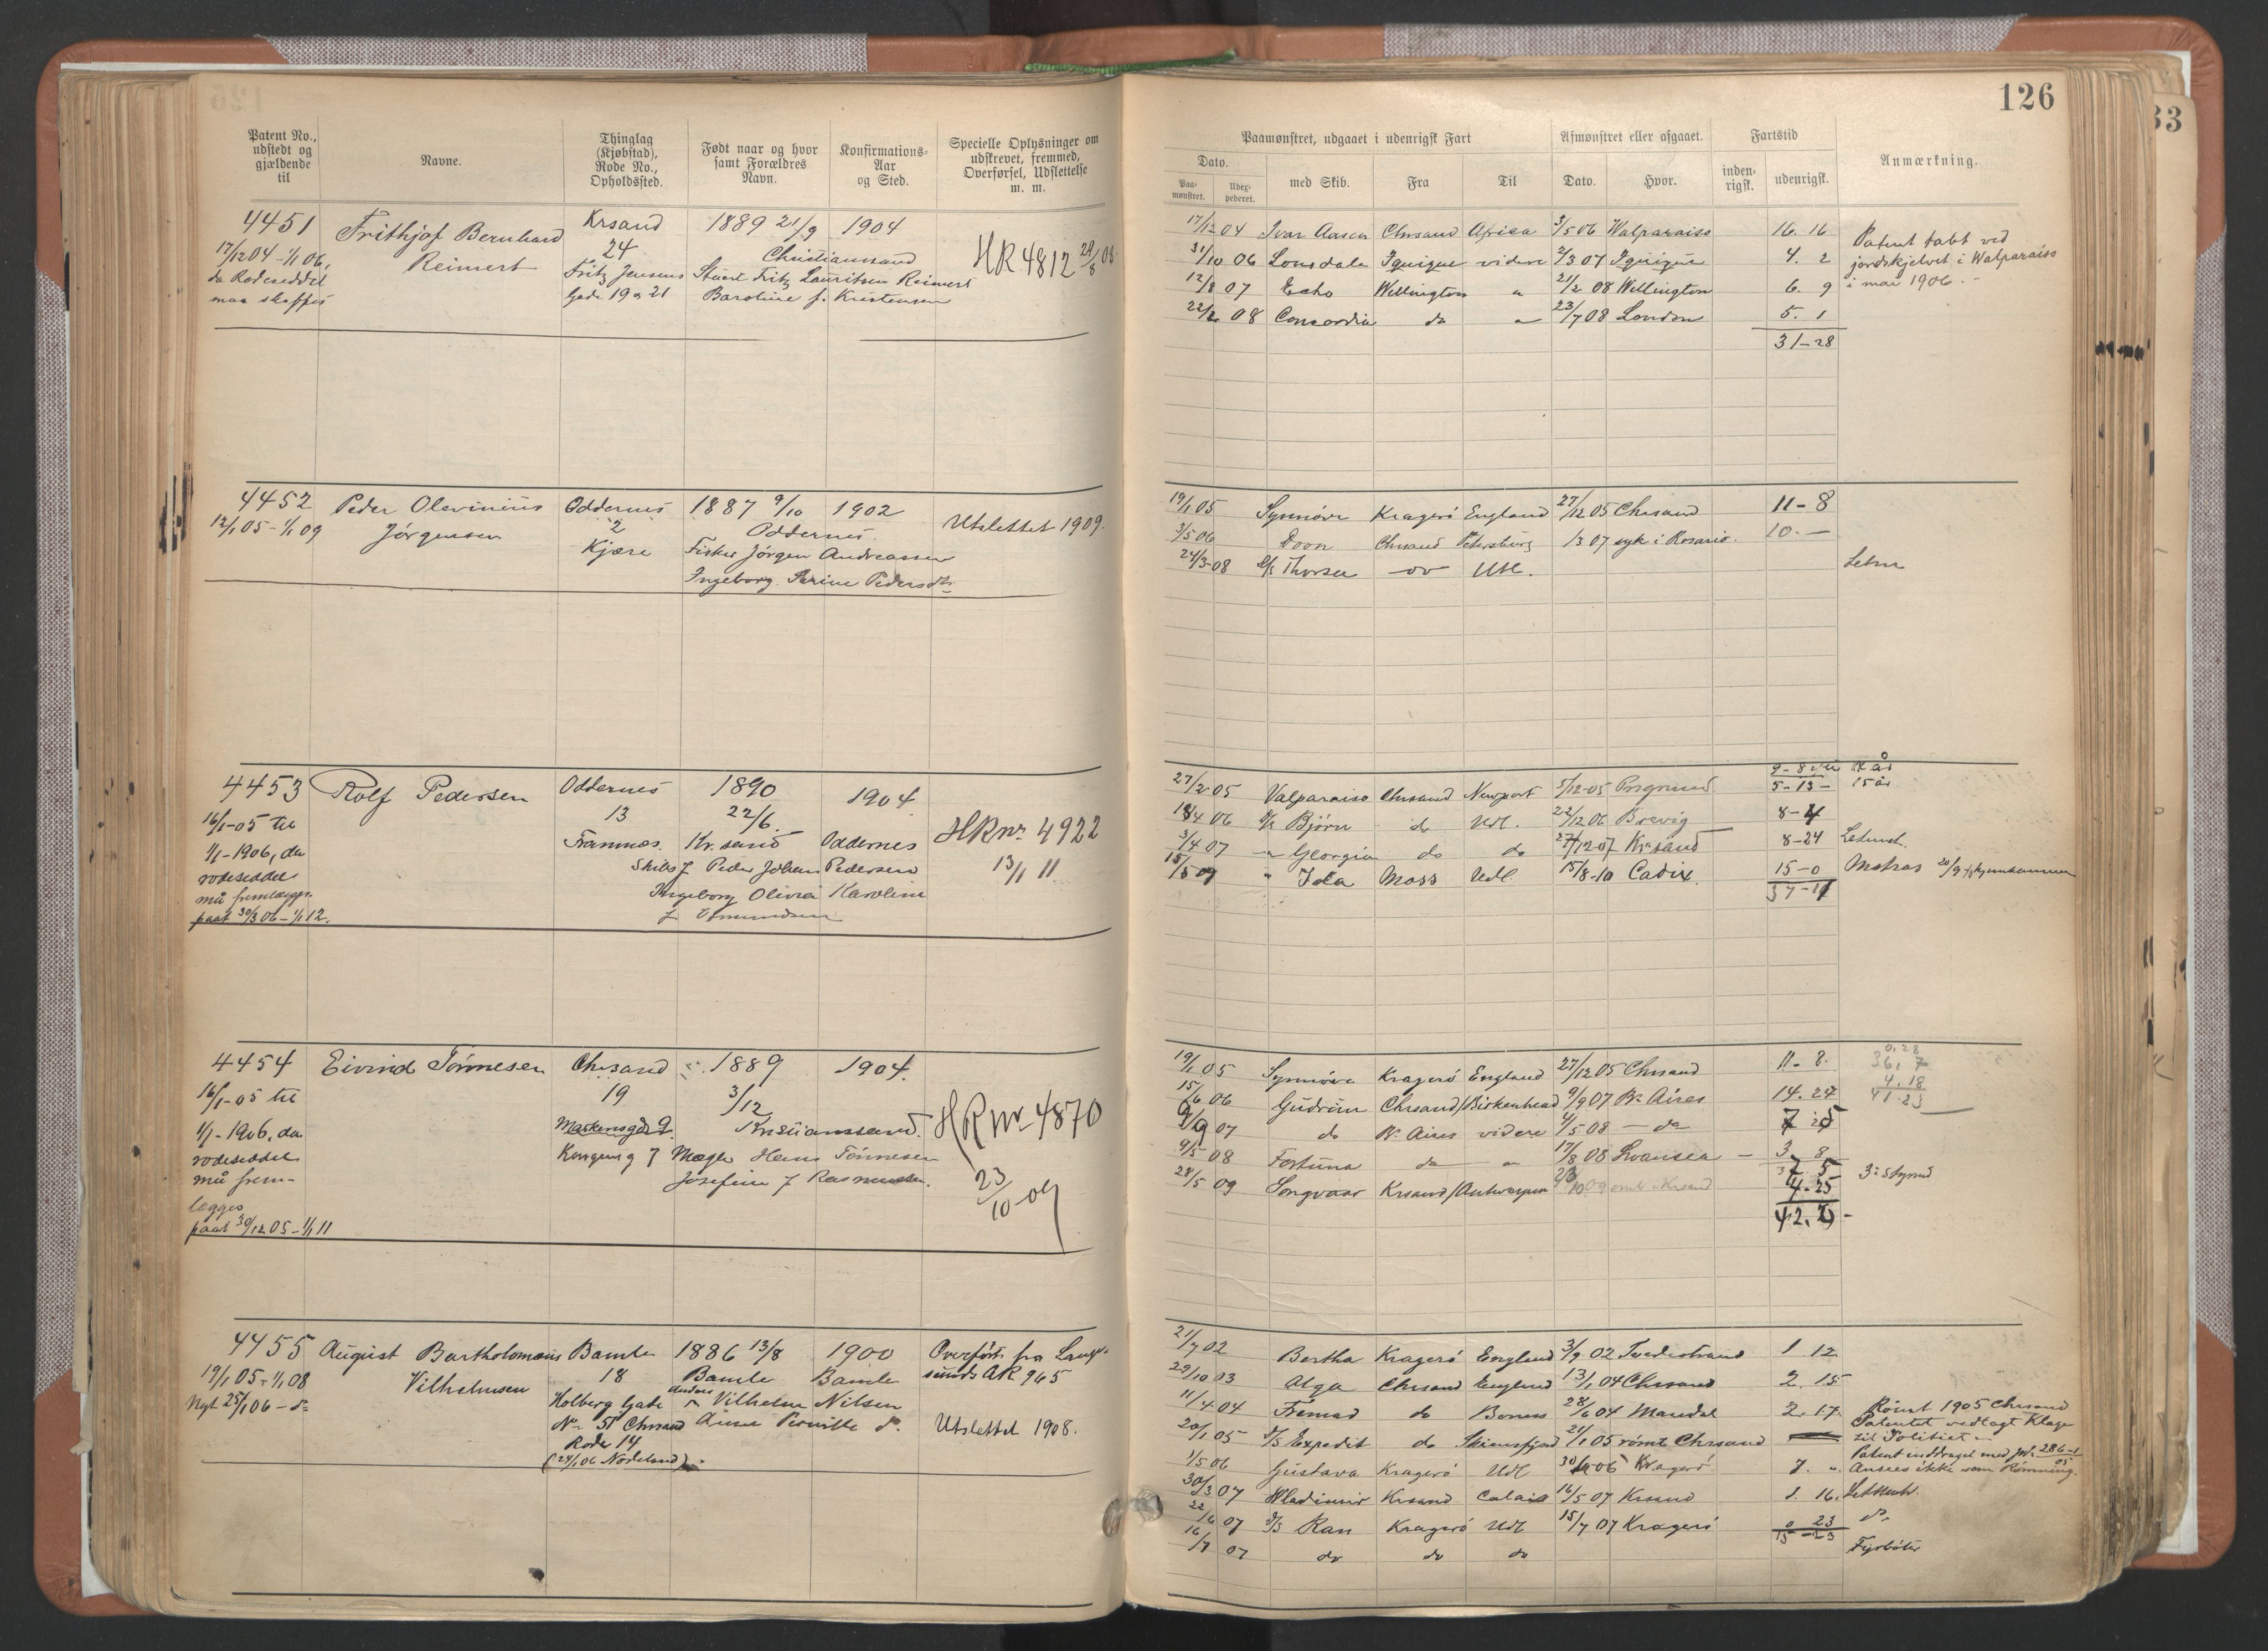 126
33
Patent No., udstedt og gjældende til
Navne.
Thinglag (Kjøbstad), Rode No., Opholdssted.
Født naar og hvor samt Forældres Navn.
Konfirmations-Aar og Sted.
Specielle Oplysninger om udskrevet, fremmed, Overførsel, Udslettelse m. m.
Paamønstret, udgaaet i udenrigsk Fart
Afmønstret eller afgaaet.
Fartstid
Anmærkning.
Dato.
Paa-mønstret.
Udex-pederet.
med Skib.
Fra
Til
Dato.
Hvor.
inden-rigsk.
udenrigsk.
4451 Frithjof Bernhard Krsand 1889 21/9 1904
17/12 04 - 1/1 06, Reinert 24 Christianssand HR 4812
da Rodeseddel Fritz Jensens Stuert Fritz Lauritsen Reinert
maa skaffes Gade 19 & 21 Baroline f. Kristensen
17/12 04 Ivar Aasen Chrsand Africa 3/5 06 Walparaiso 16. 16
31/10 06 Lonsdale Iquique videre 2/3 07 Iquique 4. 2
12/8 07 Echo Wellington " 21/2 08 Wellington 6. 9
22/2 08 Concordia do " 23/7 08 London 5. 1
31-28
Patent tabt ved
jordskjelvet i Walparaiso
i mai 1906. -
4452 Peder Olevinius Oddernes 1887 9/10 1902
12/1 05 - 1/1 09 Jørgensen 2 Oddernes. Utslettet 1909.
Kjære Fisker Jørgen Andreassen
Ingeborg Serine Pedersdtr
19/1 05 Synnøve Kragerö England 27/12 05 Chrsand 11-8
3/5 06 Doon Chrsand Petersburg 1/3 07 syk i Rosario. 10.-
24/3-08 S/S Thorsen do Utl.
4453 Rolf Pedersen Oddernes 1890 1904
16/1-05 til 13 22/6. HR nr 4922
1/1-1906, da Kr.sand Oddernes 13/1 11
rodeseddel Peder Johan Pedersen
må fremlægges Ingeborg Olivia Karoline
paat 30/3 06 - 1/1 12.
27/2 05 Valparaiso Chrsand Newport 5/12-05 Porsgrund 5-13- 15 år
18/4 06 S/S Björn do Udl. 22/12 06 Brevig 8-4
3/4 07 " Georgia do do 27/12 07 Kr.sand 8-24
15/5 09 " Ida Moss Udl 15/8-10 Cadix. 15-0 Matros
37-11
4454 Eivind Tönnesen Chrsand 1889 1904.
16/1-05 til 19 3/12
1/1-1906, da Markensgd 9. Kristianssand. HR nr 4870
rodeseddel Kongensg 7 Mægler Hans Tönnesen
må frem- Josefine f Rasmussen. 23/10-09
lægges
paat 30/12 05 - 1/1 11
19/1 05 Synnöve Kragerö England 27/12 05 Chrsand 11-8.
15/6 06 Gudrun Chrsand/Birkenhead 9/9 07 Bs Aires 14. 24
9/9 07 do Bs Aires videre 4/5 08 - do
9/5 08 Fortuna do " 17/8 08 Swansea - 3. 8
28/5 09 Songvaar Krsand/Antwerpen 4-25
42.
4455 August Bartholomæus Bamle 1886 13/8 1900 Overført fra Lange-
19/1 05 - 1/1 08 Vilhelmsen 18 Bamle Bamle sunds AR 965
Nyt 25/1 06 - do Holberg Gade Anders Vilhelm Nilsen
No 51 Chrsand Anne Pernille do. Utslettet 1908.
Rode 14
(24/1 06 Nodeland)
21/7 02 Bertha Kragerö England 3/9 02 Tvedestrand 1 12
29/10 03 Alga Chrsand England 13/1 04 Chrsand 2. 15
11/4 04 Fremad do Boness 28/6 04 Mandal 2. 17.
20/1 05 S/S Expedit do Skiensfjord 21/1 05 römt Chrsand
1/5 06 Gustava Kragerö Udl Kragerö 7. "
30/3 07 Wladimir Krsand Calais 16/5 07 Krsand 1. 16.
22/6 07 S/S Ran Kragerö Udl 15/7 07 Kragerö 0 23
15-23
16/7 07 do do do Fyrböter
Römt 1905 Chrsand
Patentet vedlagt Klage
til Politiet
Ansees ikke som Rømning.